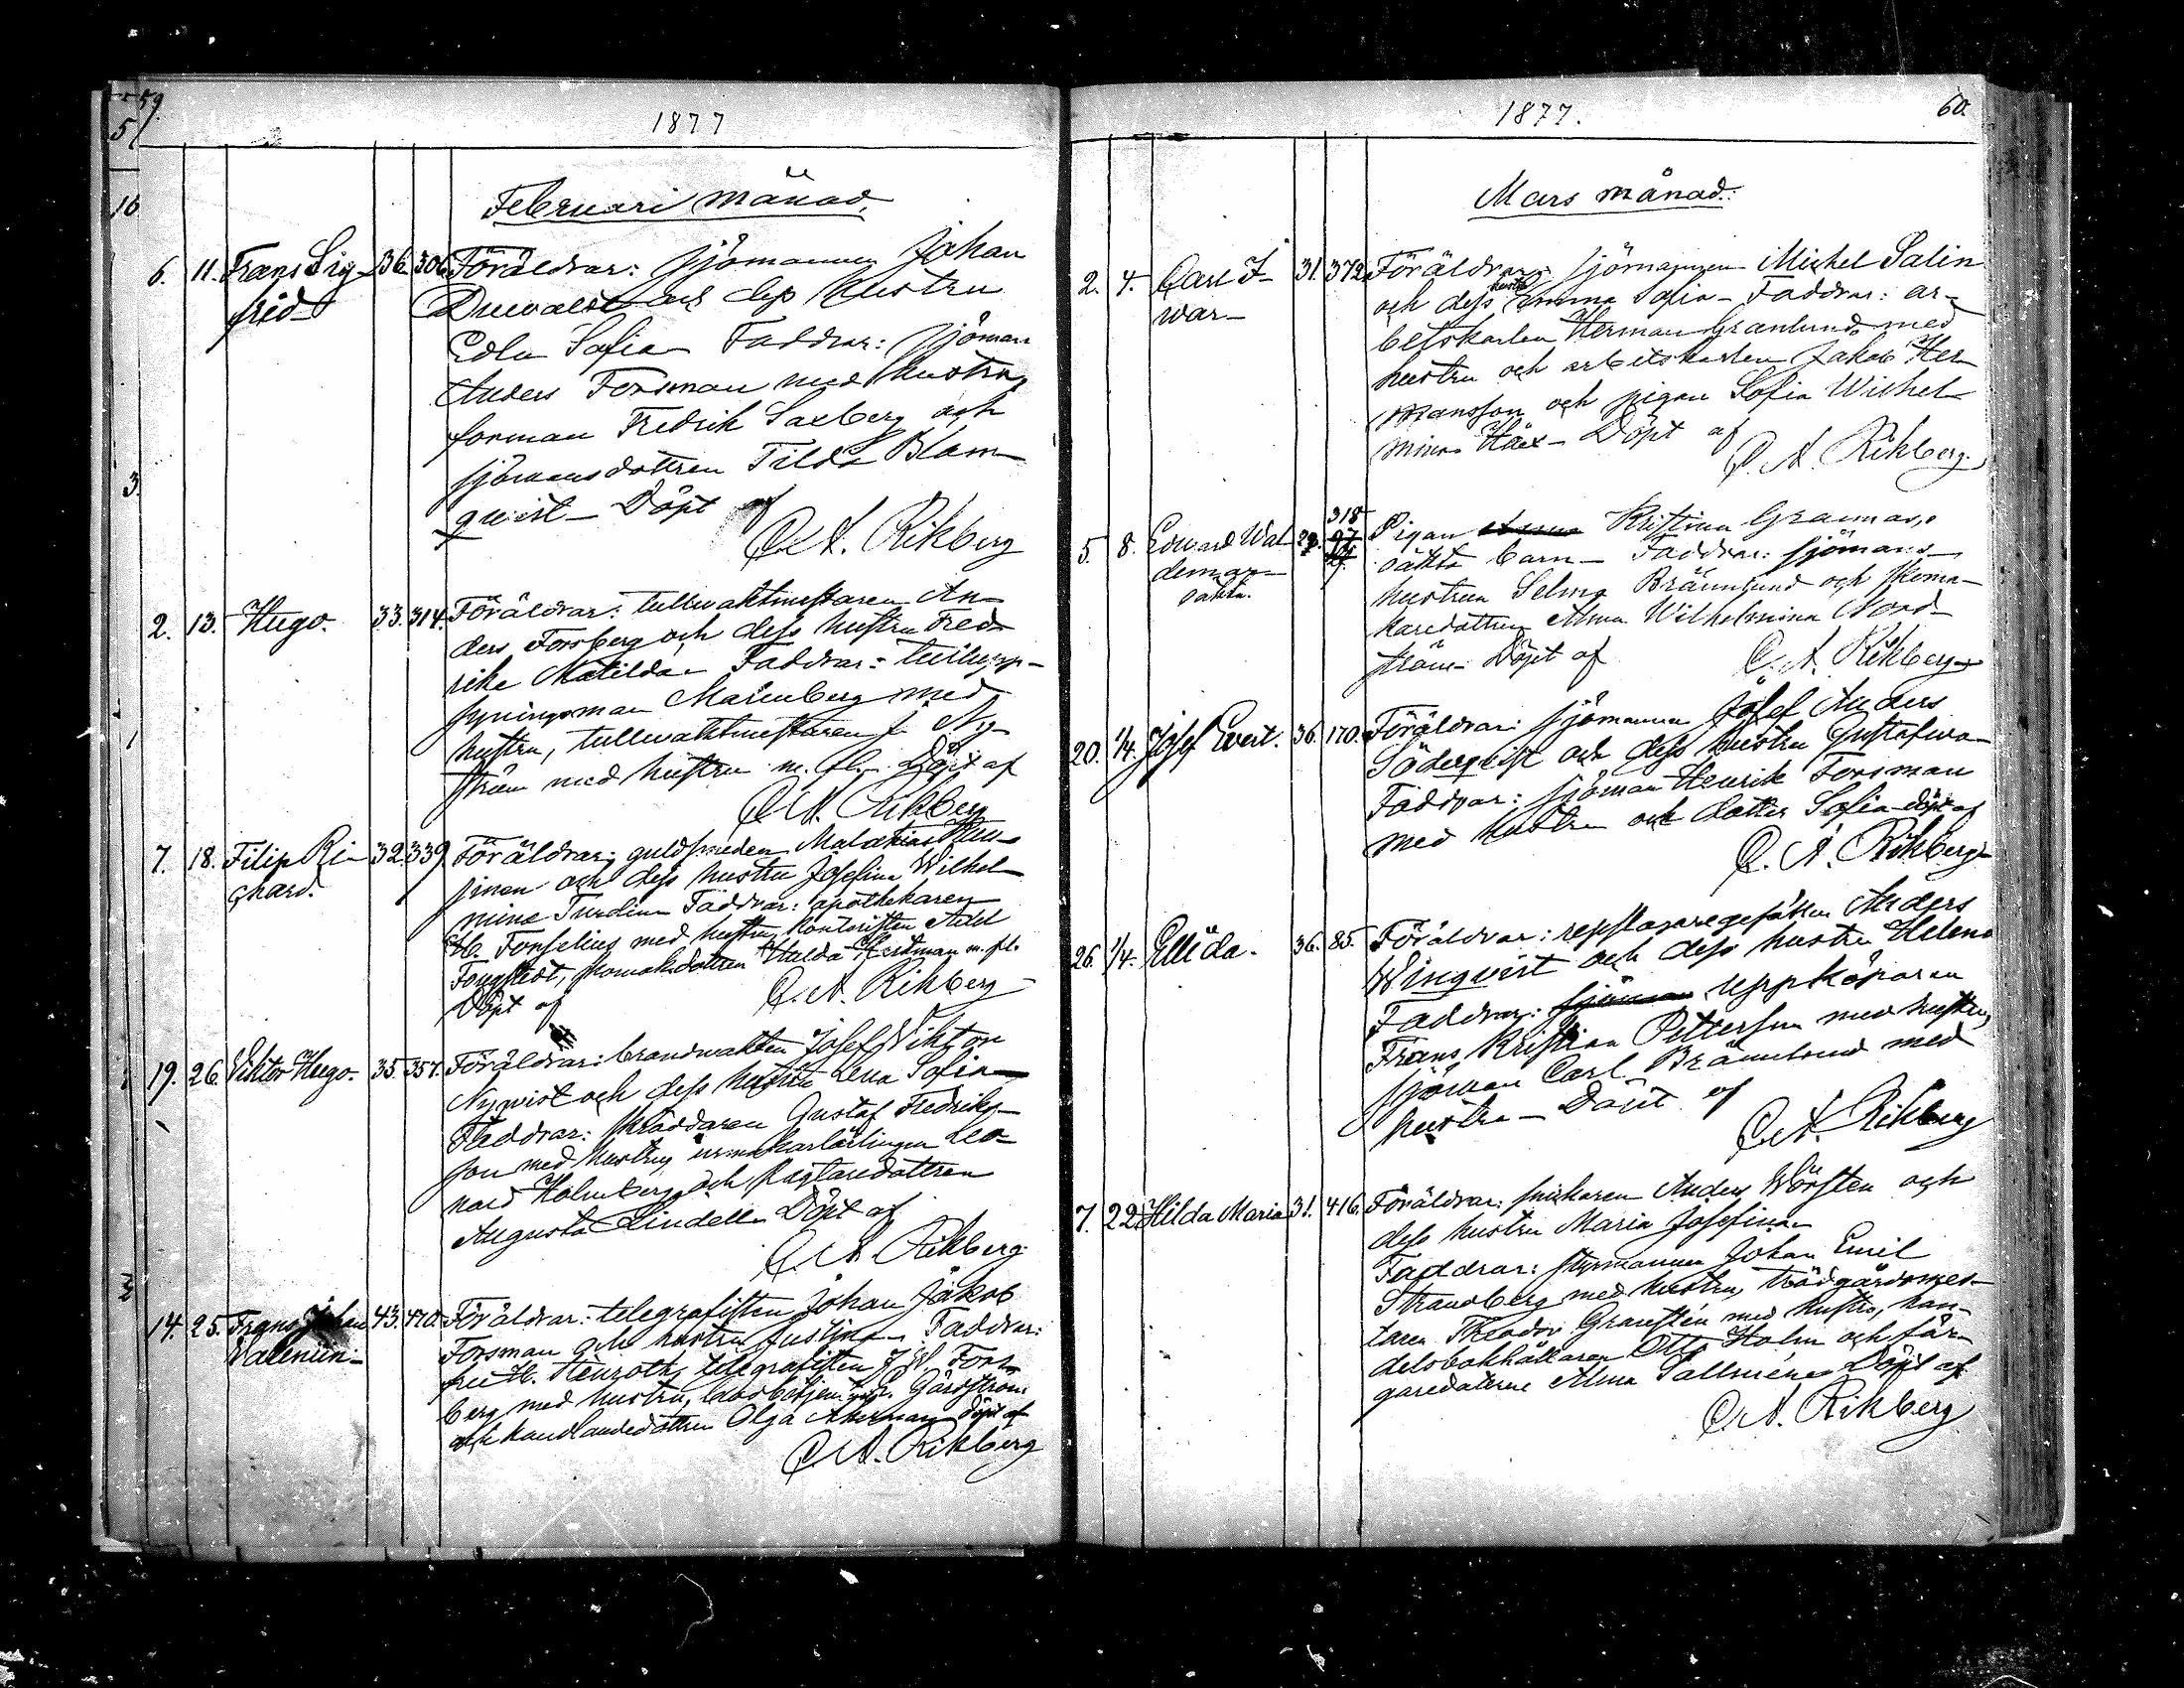 59.
1877
Februari månad.
6. 11. Frans Sig- 36. 306. Föräldrar: sjömannen Johan
frid- Duvaldt och dess hustru
Edla Sofia- Faddrar: sjöman
Anders Forsman med hustru,
forman Fredrik Saxberg och
sjömansdottren Tilda Blom-
qvist- Döpt af
C. A. Rikberg
2. 13. Hugo. 33. 314. Föräldrar: tullvaktmästaren An-
ders Forsberg och dess hustru Fred-
rike Matilda- Faddrar: tullupp-
syningsman Marenberg med
hustru, tullvaktmästaren J. Ny-
ström med hustru m. fl. Döpt af
C. A. Rikberg
7. 18. Filip Ri- 32. 339. Föräldrar: guldsmeden Malakias
chard. och dess hustru Josefina Wilhel-
mina Turdin- Faddrar: apothekaren
med hustru, kontoristen
Hulda m. fl.
Döpt af C. A. Rikberg
19. 26. Viktor Hugo. 35. 357. Föräldrar: brandvakten Josef Viktor
Nyqvist och dess hustru Lena Sofia-
Faddrar: skräddaren Gustaf Fredriks-
son med hustru, urmakarlärlingen Leo-
nard Holmberg och
Augusta Lindell- Döpt af
C. A. Rikberg.
14. 25. Frans Johan 43. 470. Föräldrar: telegrafisten Johan Jakob
Valentin- Forsman och hustru Justina- Faddrar:
fru H. Stenroth, telegrafisten J. W. Fors-
berg med hustru, Gårdström
och handlandedottren Olga Åkerman- Döpt af
C. A. Rikberg
1877. 60.
Mars månad.
2. 4. Carl I- 31. 372. Föräldrar: sjömannen Michel Salin
war- och dess hustru Emma Sofia- Faddrar: ar-
betskarlen Herman Granlund med
hustru och arbetskarlen Jakob Her-
mansson och pigan Sofia Wilhel-
mina Döpt af
C. A. Rikberg.
318
5. 8. Edvard Wal- 29. Pigan Kristina
demar- oäkta barn- Faddrar: sjömans-
oäkta. hustrun Selma Brännlund och skoma-
karedottren Alma Wilhelmina Nord-
ström- Döpt af C. A. Rikberg
20. 1/4. Josef Evert. 36. 170. Föräldrar: sjömannen Josef Anders
Söderqvist och dess hustru Gustafva-
Faddrar: sjöman Henrik Forsman
med hustru och dotter Sofia- döpt af
C. A. Rikberg
26. 1/4. Elli Ida. 36. 85. Föräldrar: repslagaregesällen Anders
Winqvist och dess hustru Helena
Faddrar: uppköparen
Frans Kristian Petterson med hustru,
sjöman Carl Brännlund med
hustru- Döpt af
C. A. Rikberg
7. 22. Hilda Maria 31. 416. Föräldrar: snickaren Anders Wörsten och
dess hustru Maria Josefina-
Faddrar: styrmannen Johan Emil
Strandberg med hustru, trädgårdsmäs-
taren Theodor Granstén med hustru, han-
delsbokhållaren Otto Holm och fär-
garedottren Alma Sallmén- Döpt af
C. A. Rikberg